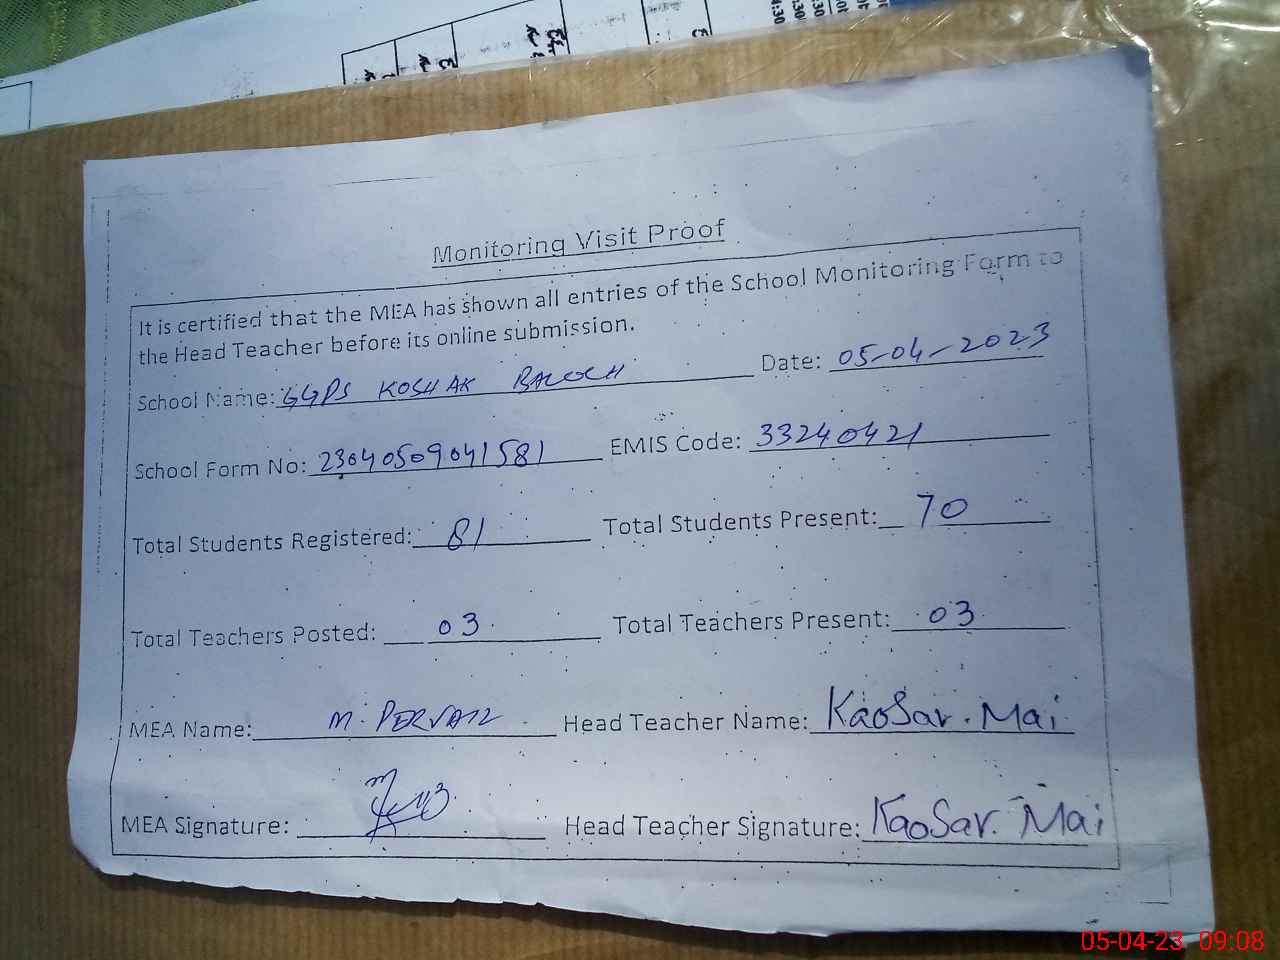 Monitoring Visit Proof
It is certified that the MEA has shown all entries of the School Monitoring Form to
the Head Teacher before its online submission.
School Name: GGPS KOSHAK BALOCH Date: 05-04-2023
School Form No: 23040509041581 EMIS Code: 33240421
Total Students Registered: 81 Total Students Present: 70
Total Teachers Posted: 03 Total Teachers Present: 03
MEA Name: M. PERVAIZ Head Teacher Name: Kaosar. Mai
MEA Signature: Head Teacher Signature: Kaosar. Mai
05-04-23 09:08